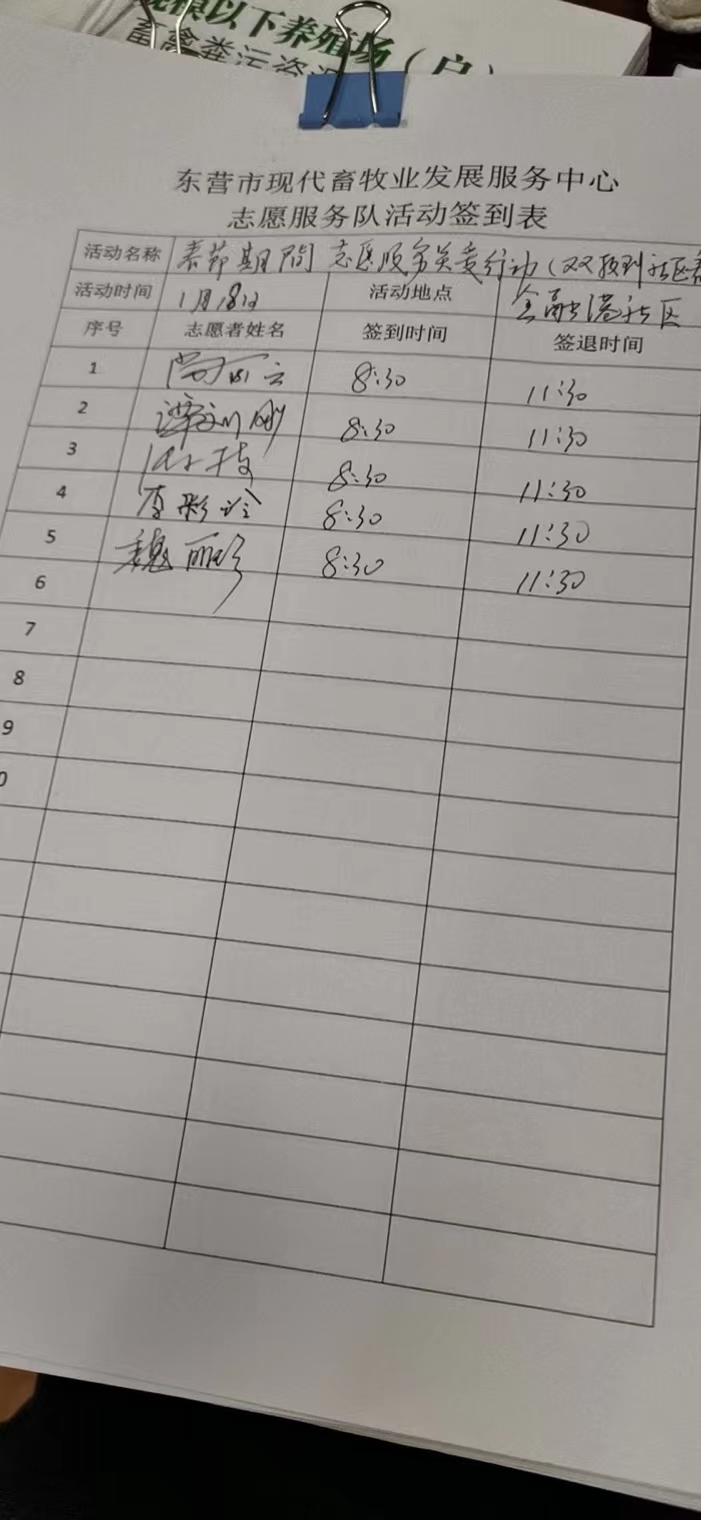 规模以下养殖场（户）
畜禽粪污资源
东营市现代畜牧业发展服务中心
志愿服务队活动签到表
活动名称 春节期间 志愿服务关爱行动（双报到社区
活动时间 1月18日 活动地点 金融港社区
序号 志愿者姓名 签到时间 签退时间
1 8:30 11:30
2 8:30 11:30
3 8:30 11:30
4 李彩玲 8:30 11:30
5 魏丽珍 8:30 11:30
6
7
8
9
0